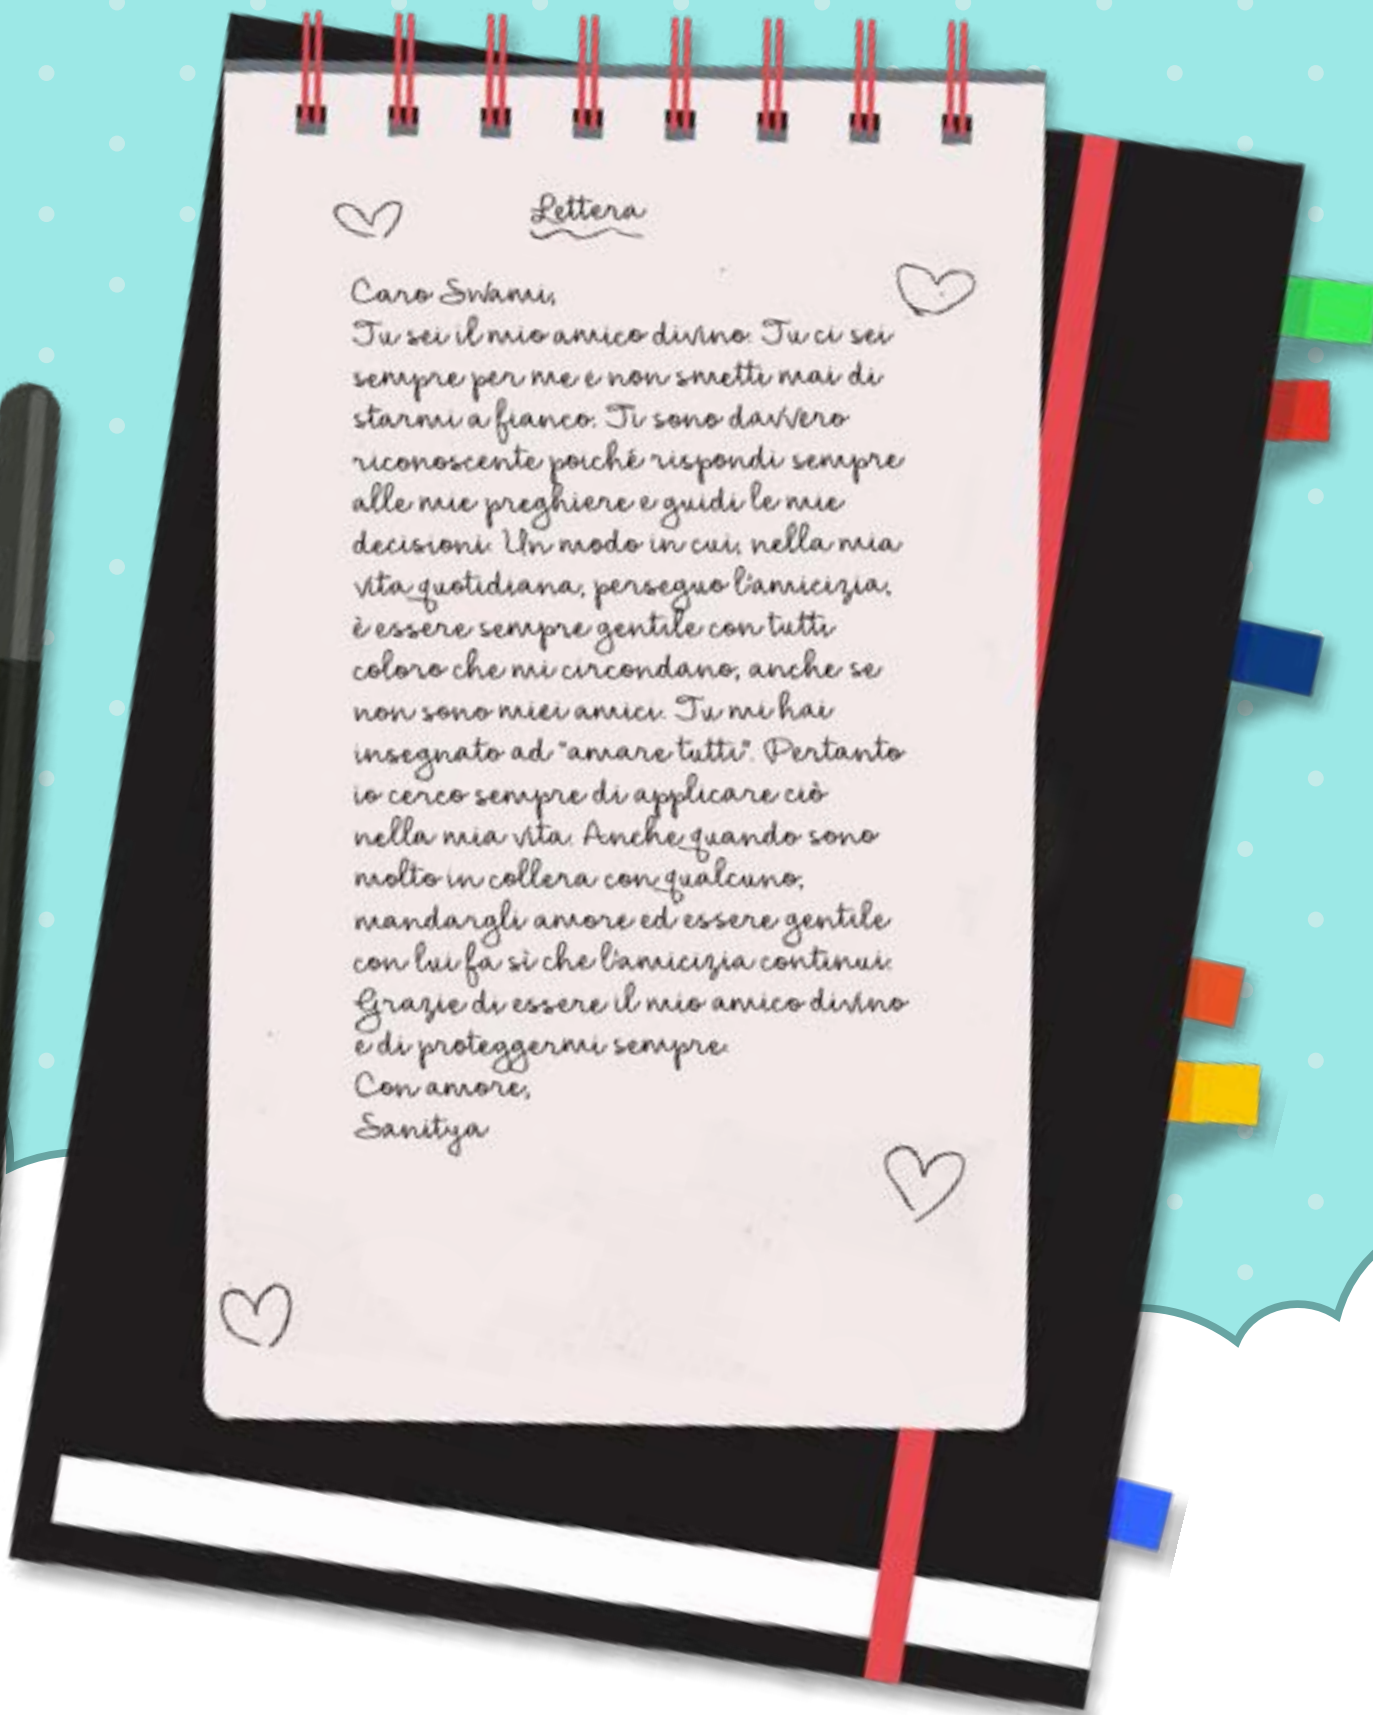 Lettera
Caro Swami,
Tu sei il mio amico divino. Tu ci sei
sempre per me e non smetti mai di
starmi a fianco. Ti sono davvero
riconoscente poiché rispondi sempre
alle mie preghiere e guidi le mie
decisioni. Un modo in cui, nella mia
vita quotidiana, perseguo l'amicizia,
è essere sempre gentile con tutti
coloro che mi circondano, anche se
non sono miei amici. Tu mi hai
insegnato ad "amare tutti". Pertanto
io cerco sempre di applicare ciò
nella mia vita. Anche quando sono
molto in collera con qualcuno,
mandargli amore ed essere gentile
con lui fa sì che l'amicizia continui.
Grazie di essere il mio amico divino
e di proteggermi sempre.
Con amore,
Sanitya